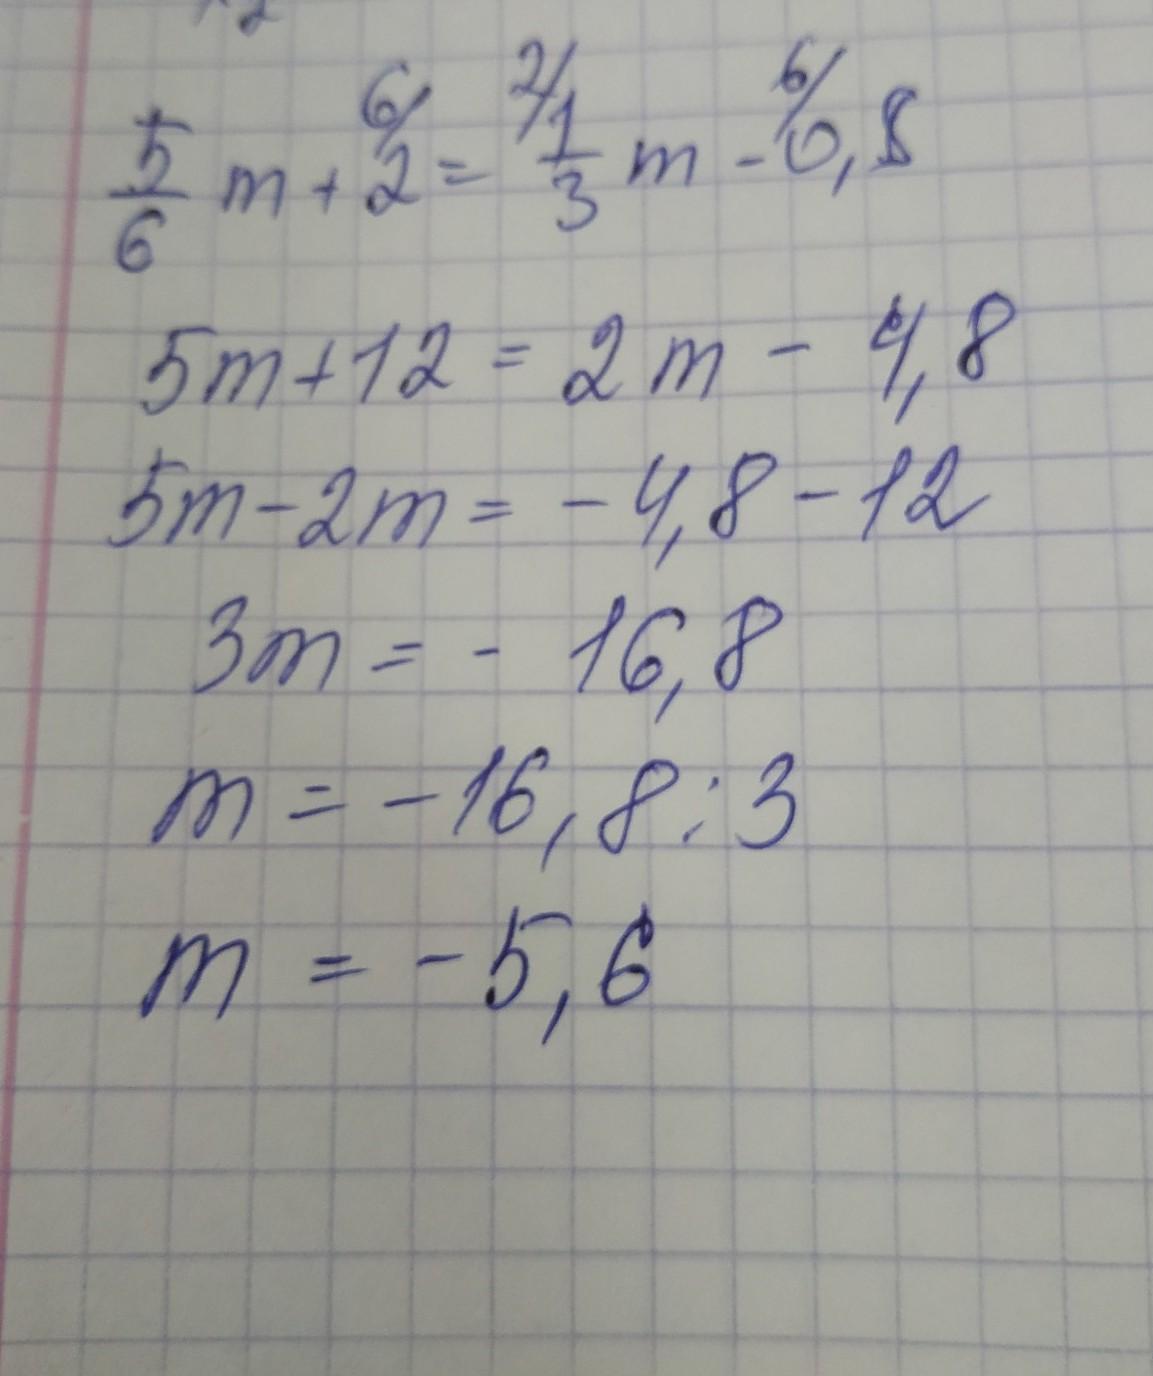 5/6 m + 6/2 = 2/1/3 m - 6/0,8
5m + 12 = 2m - 4,8
5m - 2m = - 4,8 - 12
3m = - 16,8
m = - 16,8 : 3
m = - 5,6